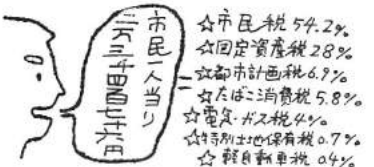 市民一人当り
二万三千四百七十六円
☆市民税 54.2%
☆固定資産税 28%
☆都市計画税 6.9%
☆たばこ消費税 5.8%
☆電気・ガス税 4%
☆特別土地保有税 0.7%
☆軽自動車税 0.4%